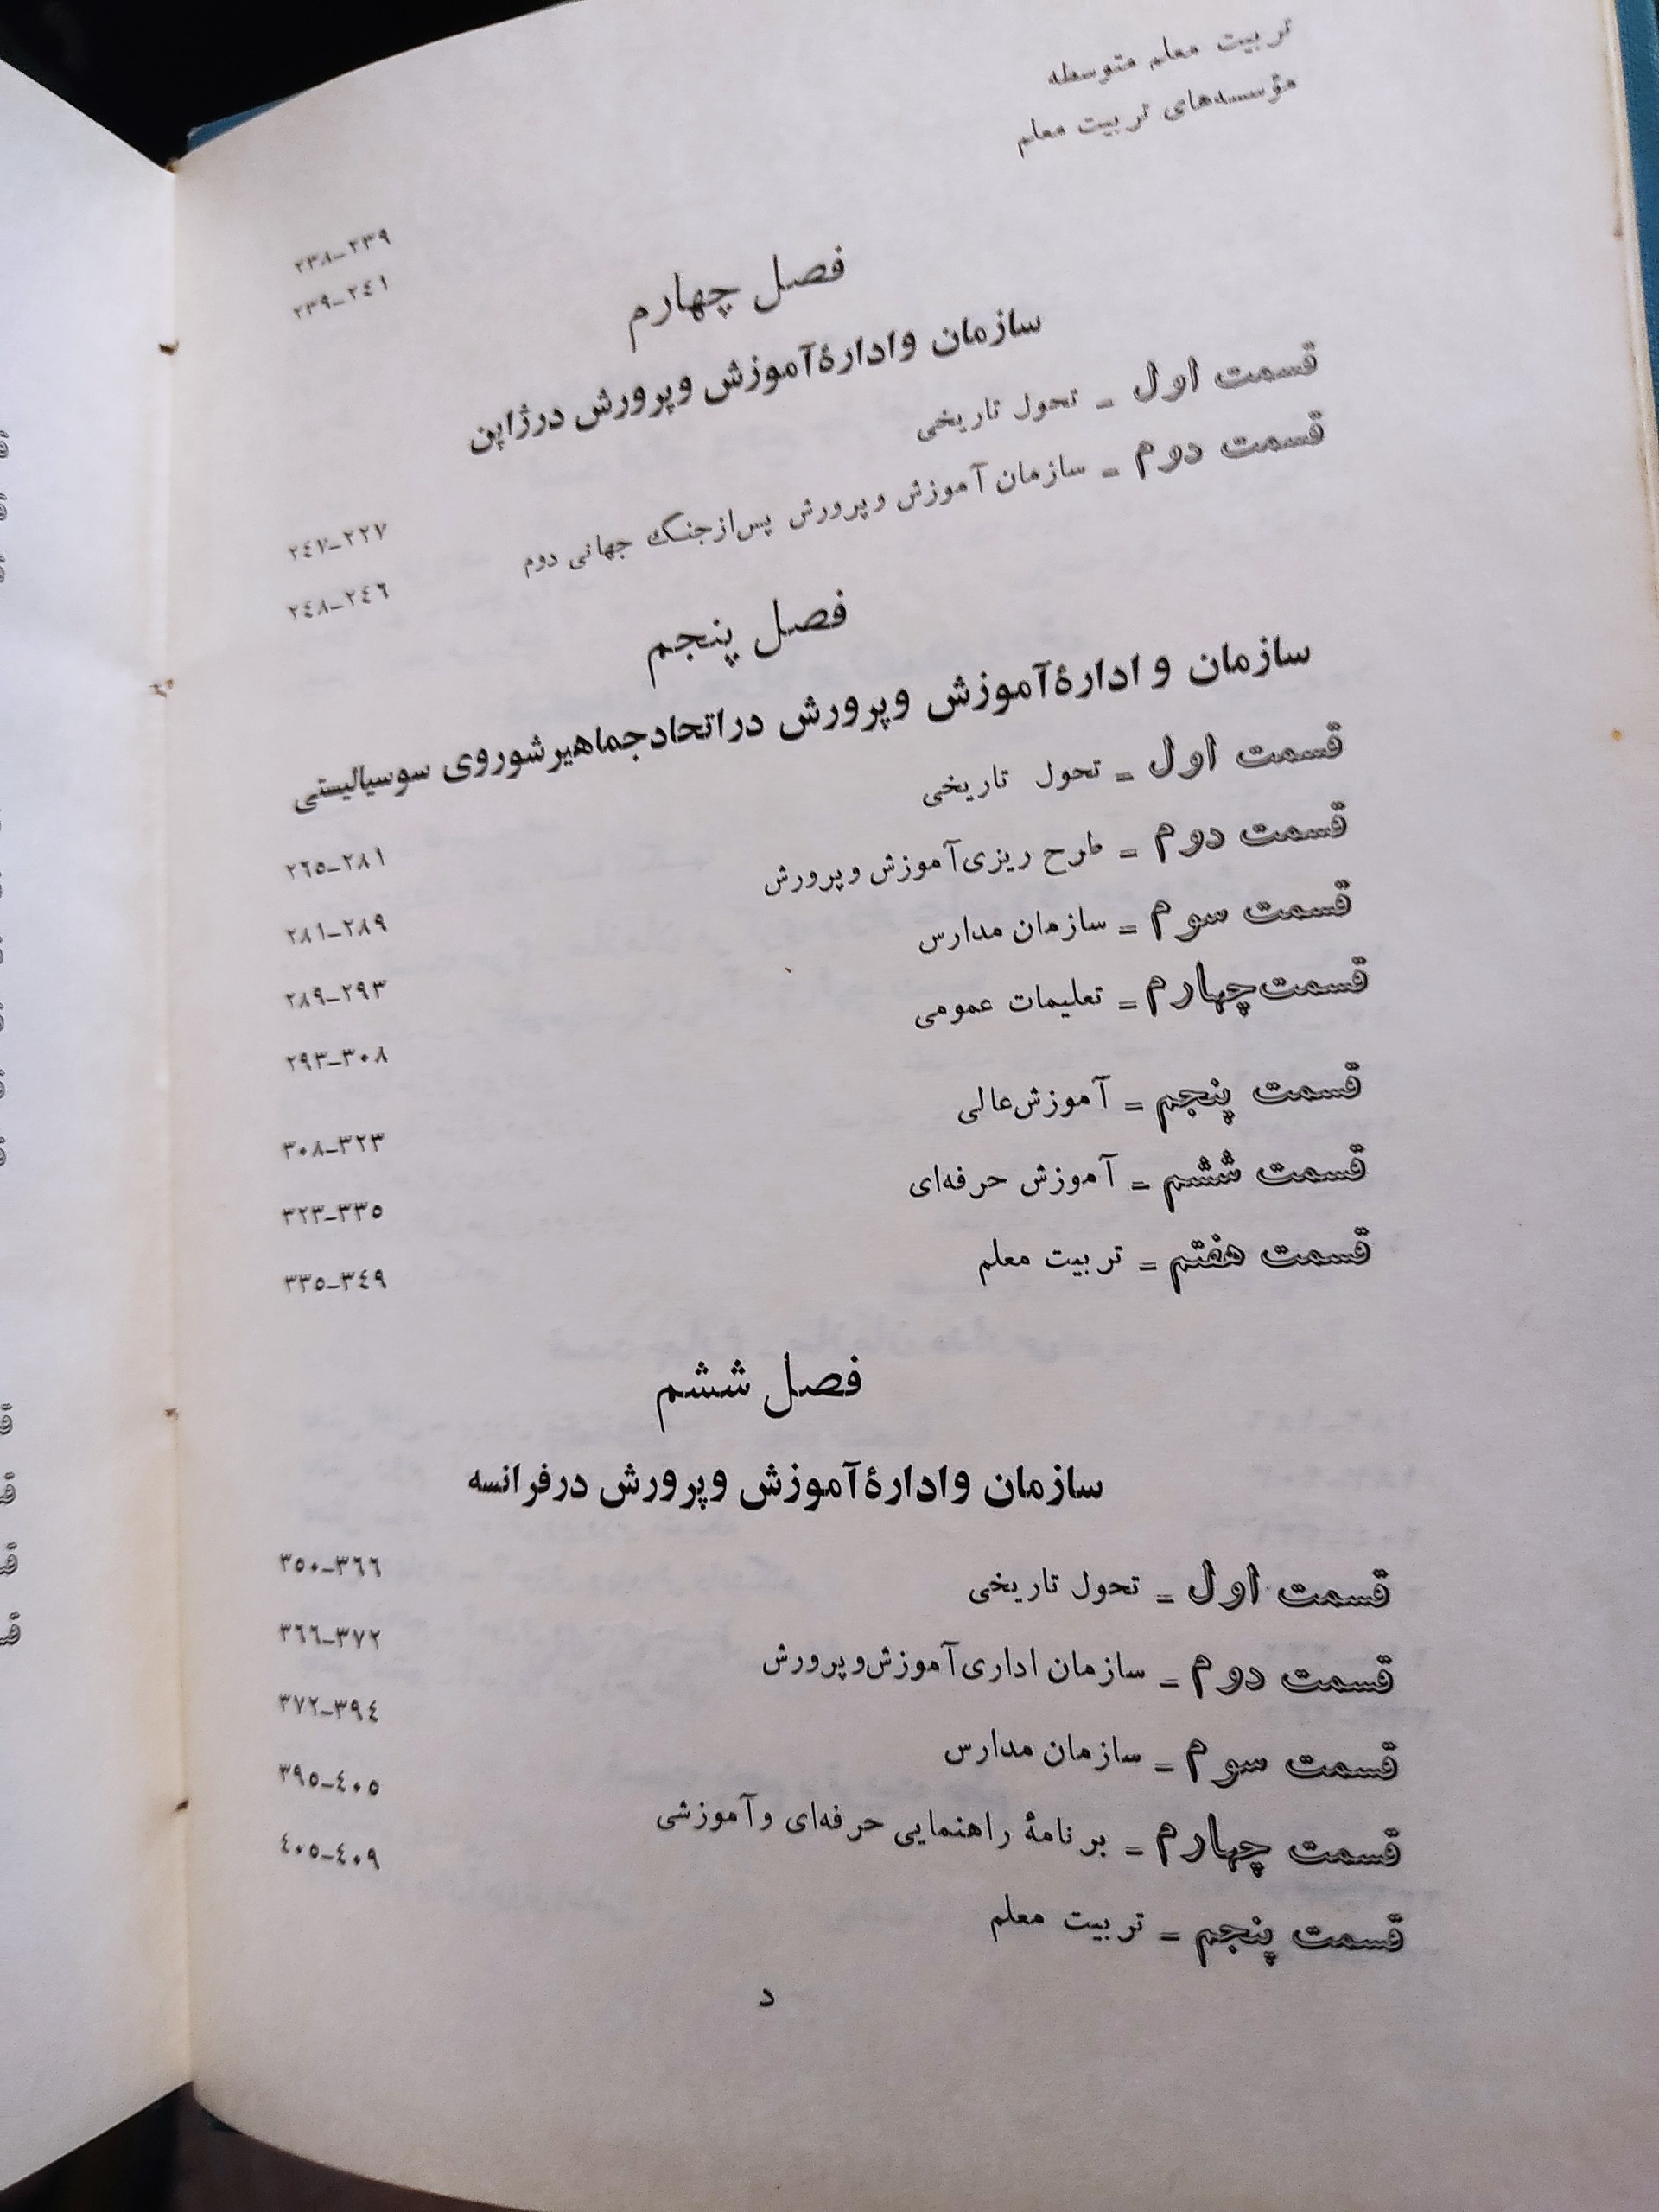 تربیت معلم متوسطه ۲۳۸-۲۳۹
مؤسسه‌های تربیت معلم ۲۳۹-۲٤۱
فصل چهارم
سازمان و ادارهٔ آموزش و پرورش در ژاپن
قسمت اول - تحول تاریخی ۲٤۷-۲۲۷
قسمت دوم - سازمان آموزش و پرورش پس از جنگ جهانی دوم ۲٤۸-۲٤٦
فصل پنجم
سازمان و ادارهٔ آموزش و پرورش در اتحاد جماهیر شوروی سوسیالیستی
قسمت اول - تحول تاریخی ۲٦٥-۲۸۱
قسمت دوم - طرح ریزی آموزش و پرورش ۲۸۱-۲۸۹
قسمت سوم - سازمان مدارس ۲۸۹-۲۹۳
قسمت چهارم - تعلیمات عمومی ۲۹۳-۳۰۸
قسمت پنجم - آموزش عالی ۳۰۸-۳۲۳
قسمت ششم - آموزش حرفه‌ای ۳۲۳-۳۳٥
قسمت هفتم - تربیت معلم ۳۳٥-۳٤۹
فصل ششم
سازمان و ادارهٔ آموزش و پرورش در فرانسه
قسمت اول - تحول تاریخی ۳٥۰-۳٦٦
قسمت دوم - سازمان اداری آموزش و پرورش ۳٦٦-۳۷۲
قسمت سوم - سازمان مدارس ۳۷۲-۳۹٤
قسمت چهارم - برنامهٔ راهنمایی حرفه‌ای و آموزشی ۳۹٥-٤۰٥
قسمت پنجم - تربیت معلم ٤۰٥-٤۰۹
د